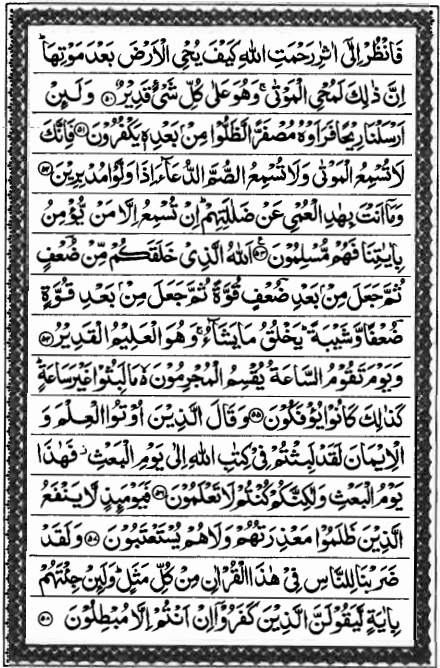 فَانْظُرْ اِلٰۤى اٰثٰرِ رَحْمَتِ اللّٰهِ كَيْفَ يُحْيِ الْاَرْضَ بَعْدَ مَوْتِهَا ؕ
اِنَّ ذٰلِكَ لَمُحْيِ الْمَوْتٰى ۚ وَهُوَ عَلٰى كُلِّ شَيْءٍ قَدِيْرٌ ﴿۵۰﴾ وَلَئِنْ
اَرْسَلْنَا رِيْحًا فَرَاَوْهُ مُصْفَرًّا لَّظَلُّوْا مِنْۢ بَعْدِهٖ يَكْفُرُوْنَ ﴿۵۱﴾ فَاِنَّكَ
لَا تُسْمِعُ الْمَوْتٰى وَلَا تُسْمِعُ الصُّمَّ الدُّعَآءَ اِذَا وَلَّوْا مُدْبِرِيْنَ ﴿۵۲﴾
وَمَاۤ اَنْتَ بِهٰدِ الْعُمْيِ عَنْ ضَلٰلَتِهِمْ ؕ اِنْ تُسْمِعُ اِلَّا مَنْ يُّؤْمِنُ
بِاٰيٰتِنَا فَهُمْ مُّسْلِمُوْنَ ﴿۵۳﴾ اَللّٰهُ الَّذِيْ خَلَقَكُمْ مِّنْ ضُعْفٍ
ثُمَّ جَعَلَ مِنْۢ بَعْدِ ضُعْفٍ قُوَّةً ثُمَّ جَعَلَ مِنْۢ بَعْدِ قُوَّةٍ
ضُعْفًا وَّشَيْبَةً ؕ يَخْلُقُ مَا يَشَآءُ ۚ وَهُوَ الْعَلِيْمُ الْقَدِيْرُ ﴿۵۴﴾
وَيَوْمَ تَقُوْمُ السَّاعَةُ يُقْسِمُ الْمُجْرِمُوْنَ ۙ مَا لَبِثُوْا غَيْرَ سَاعَةٍ ؕ
كَذٰلِكَ كَانُوْا يُؤْفَكُوْنَ ﴿۵۵﴾ وَقَالَ الَّذِيْنَ اُوْتُوا الْعِلْمَ وَ
الْاِيْمَانَ لَقَدْ لَبِثْتُمْ فِيْ كِتٰبِ اللّٰهِ اِلٰى يَوْمِ الْبَعْثِ ؗ فَهٰذَا
يَوْمُ الْبَعْثِ وَلٰكِنَّكُمْ كُنْتُمْ لَا تَعْلَمُوْنَ ﴿۵۶﴾ فَيَوْمَئِذٍ لَّا يَنْفَعُ
الَّذِيْنَ ظَلَمُوْا مَعْذِرَتُهُمْ وَلَا هُمْ يُسْتَعْتَبُوْنَ ﴿۵۷﴾ وَلَقَدْ
ضَرَبْنَا لِلنَّاسِ فِيْ هٰذَا الْقُرْاٰنِ مِنْ كُلِّ مَثَلٍ ؕ وَلَئِنْ جِئْتَهُمْ
بِاٰيَةٍ لَّيَقُوْلَنَّ الَّذِيْنَ كَفَرُوْۤا اِنْ اَنْتُمْ اِلَّا مُبْطِلُوْنَ ﴿۵۸﴾